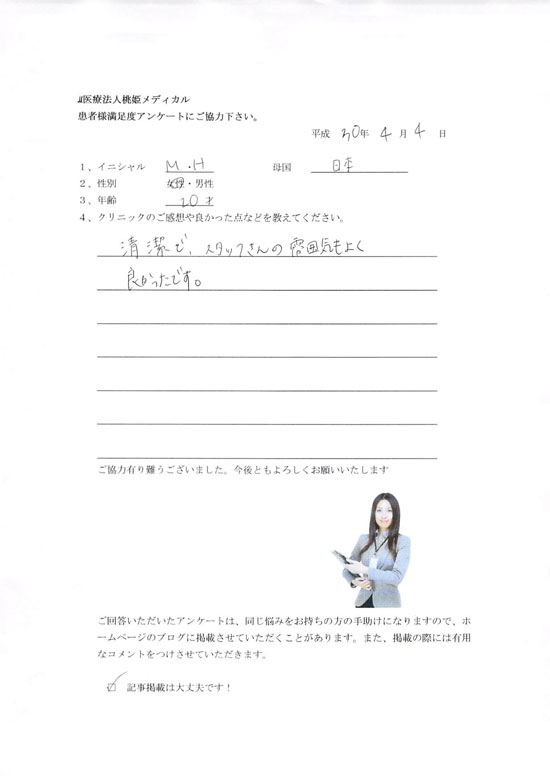 医療法人桃姫メディカル
患者様満足度アンケートにご協力下さい。
平成 30年 4 月 4 日
1、イニシャル M.H 母国 日本
2、性別 女性・男性
3、年齢 20才
4、クリニックのご感想や良かった点などを教えてください。
清潔で、スタッフさんの雰囲気もよく
良かったです。
ご協力有り難うございました。今後ともよろしくお願いいたします
ご回答いただいたアンケートは、同じ悩みをお持ちの方の手助けになりますので、ホ
ームページのブログに掲載させていただくことがあります。また、掲載の際には有用
なコメントをつけさせていただきます。
☑ 記事掲載は大丈夫です！